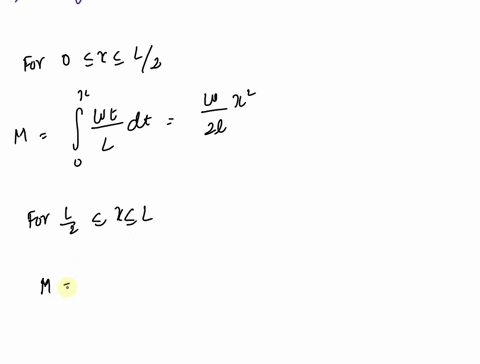 For 0 ≤ x ≤ L/2
M = ∫₀ˣ Wt/L dt = w/2l x²
For L/2 ≤ x ≤ L
M =